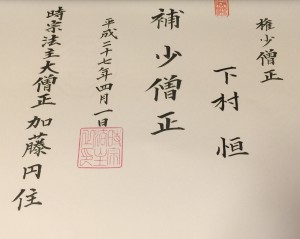 権少僧正
下村恒
補少僧正
平成二十七年四月一日
時宗法主大僧正加藤円住